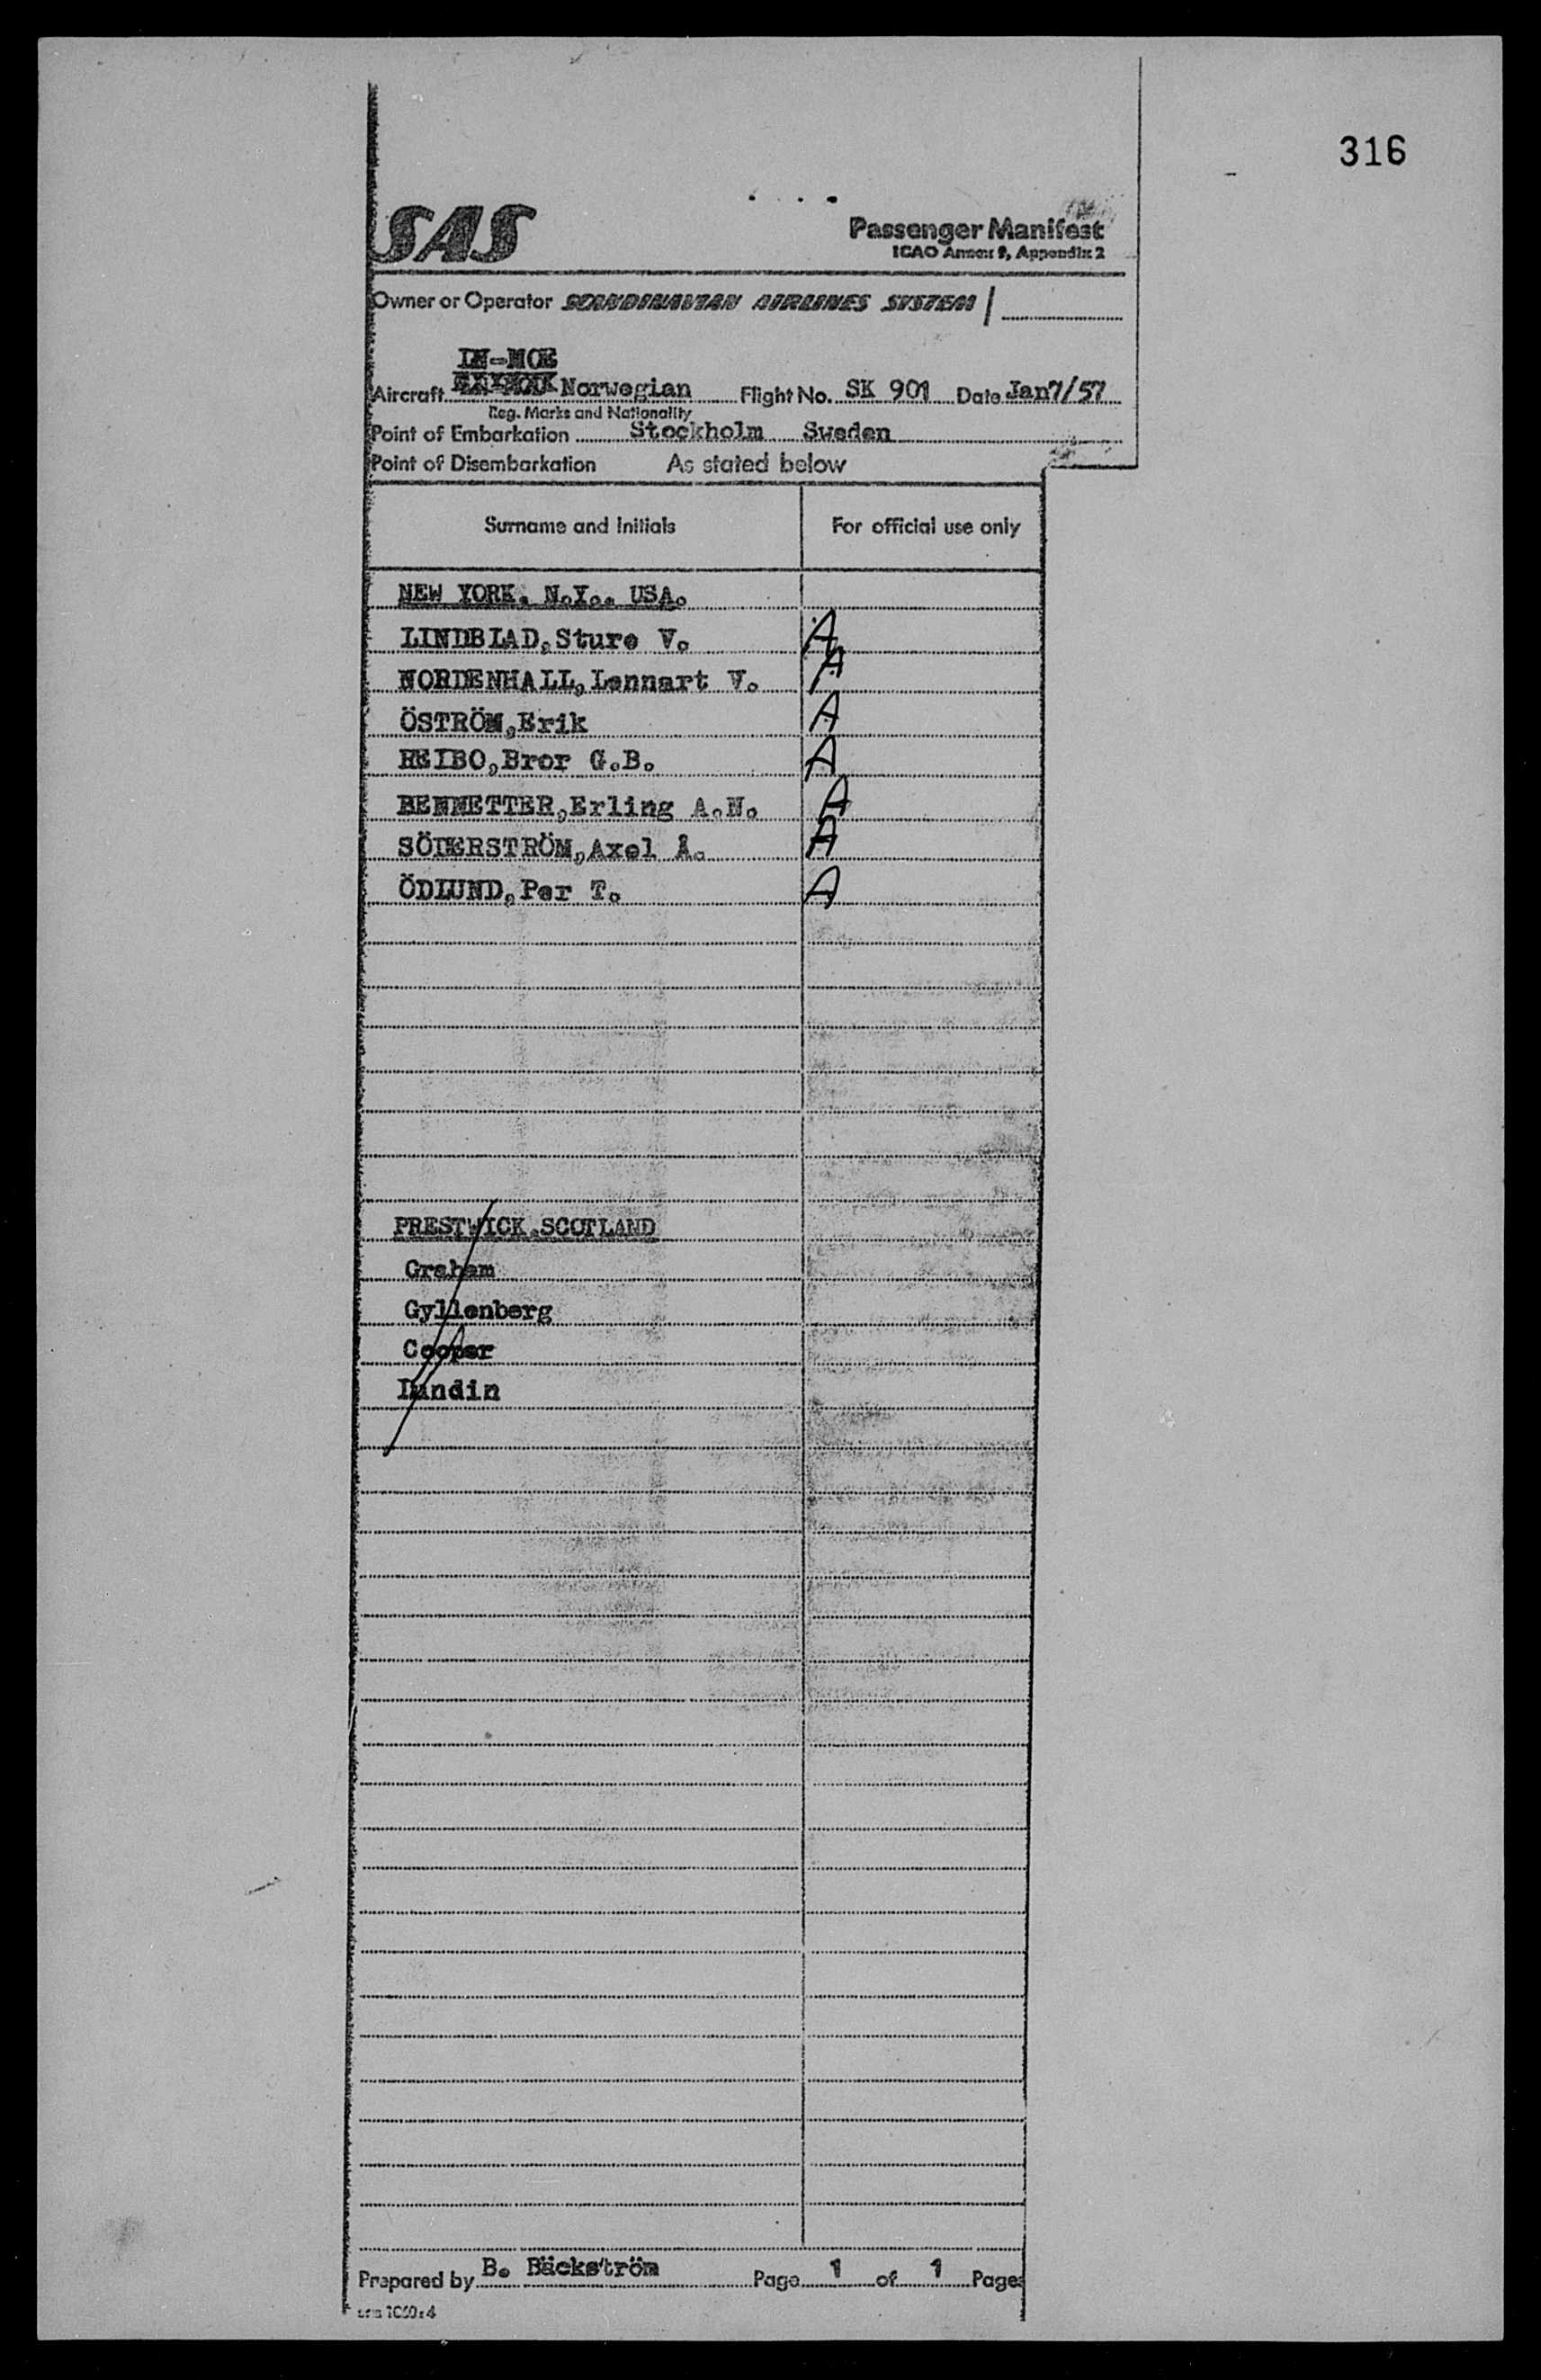 316
SAS
Passenger Manifest
ICAO Annex 9, Appendix 2
Owner or Operator SCANDINAVIAN AIRLINES SYSTEM /
LN-MOE
Aircraft Norwegian Flight No. SK 901 Date Jan 7/57
Reg. Marks and Nationality
Point of Embarkation Stockholm Sweden
Point of Disembarkation As stated below
Surname and Initials For official use only
NEW YORK. N.Y.. USA.
LINDBLAD,Sture V. A
NORDENHALL,Lennart V. A
ÖSTRÖM,Erik A
REIBO,Bror G.B. A
BENNETTER,Erling A.N. A
SÖDERSTRÖM,Axel Å. A
ÖDLUND,Per T. A
PRESTWICK.SCOTLAND
Graham
Gyllenberg
Cooper
Lundin
Prepared by B. Bäckström Page 1 of 1 Pages